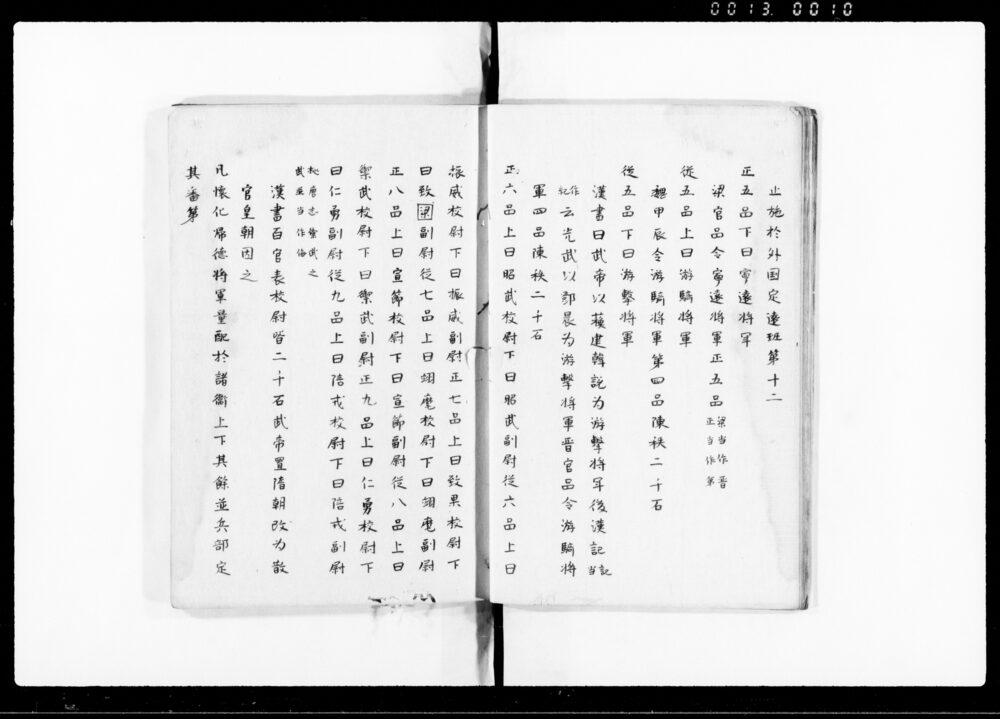 0013 0010
止施於外国定遠班第十二
正五品下曰寧遠将军
梁官品令寧遠将軍正五品梁当作晋正当作第
從五品上曰游騎将軍
魏甲辰令游騎将軍第四品陳秩二十石
從五品下曰游擊将軍
漢書曰武帝以蘓建韓説为游擊将军後漢記記当
作紀云光武以鄧晨为游擊将軍晋官品令游騎将
軍四品陳秩二十石
正六品上曰昭武校尉下曰昭武副尉從六品上曰
振威校尉下曰振威副尉正七品上曰致果校尉下
曰致梁副尉從七品上曰翊麾校尉下曰翊麾副尉
正八品上曰宣節校尉下曰宣節副尉從八品上曰
禦武校尉下曰禦武副尉正九品上曰仁勇校尉下
曰仁勇副尉從九品上曰陪戎校尉下曰陪戎副尉
松唐志禦武之武並当作侮
漢書百官表校尉皆二十石武帝置隋朝改为散
官皇朝因之
凡懷化歸德将軍量配於諸衛上下其餘並兵部定
其番第